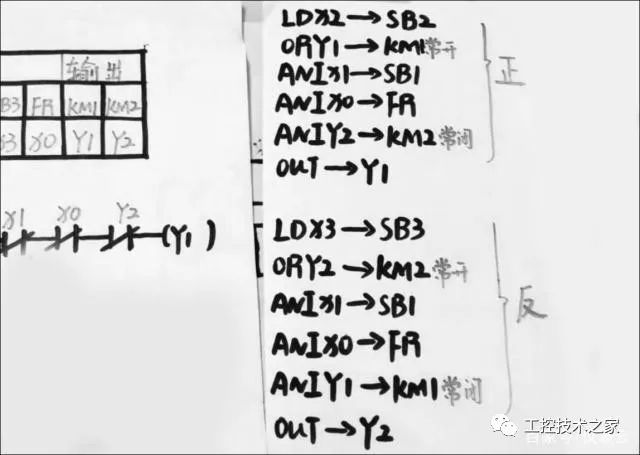 输出
B3 FR KM1 KM2
X3 X0 Y1 Y2
X1 X0 Y2
(Y1)
LDX2→SB2
ORY1→KM1常开
ANIX1→SB1
ANIX0→FR
ANIY2→KM2常闭
OUT→Y1
正
LDX3→SB3
ORY2→KM2常开
ANIX1→SB1
ANIX0→FR
ANIY1→KM1常闭
OUT→Y2
反
工控技术之家